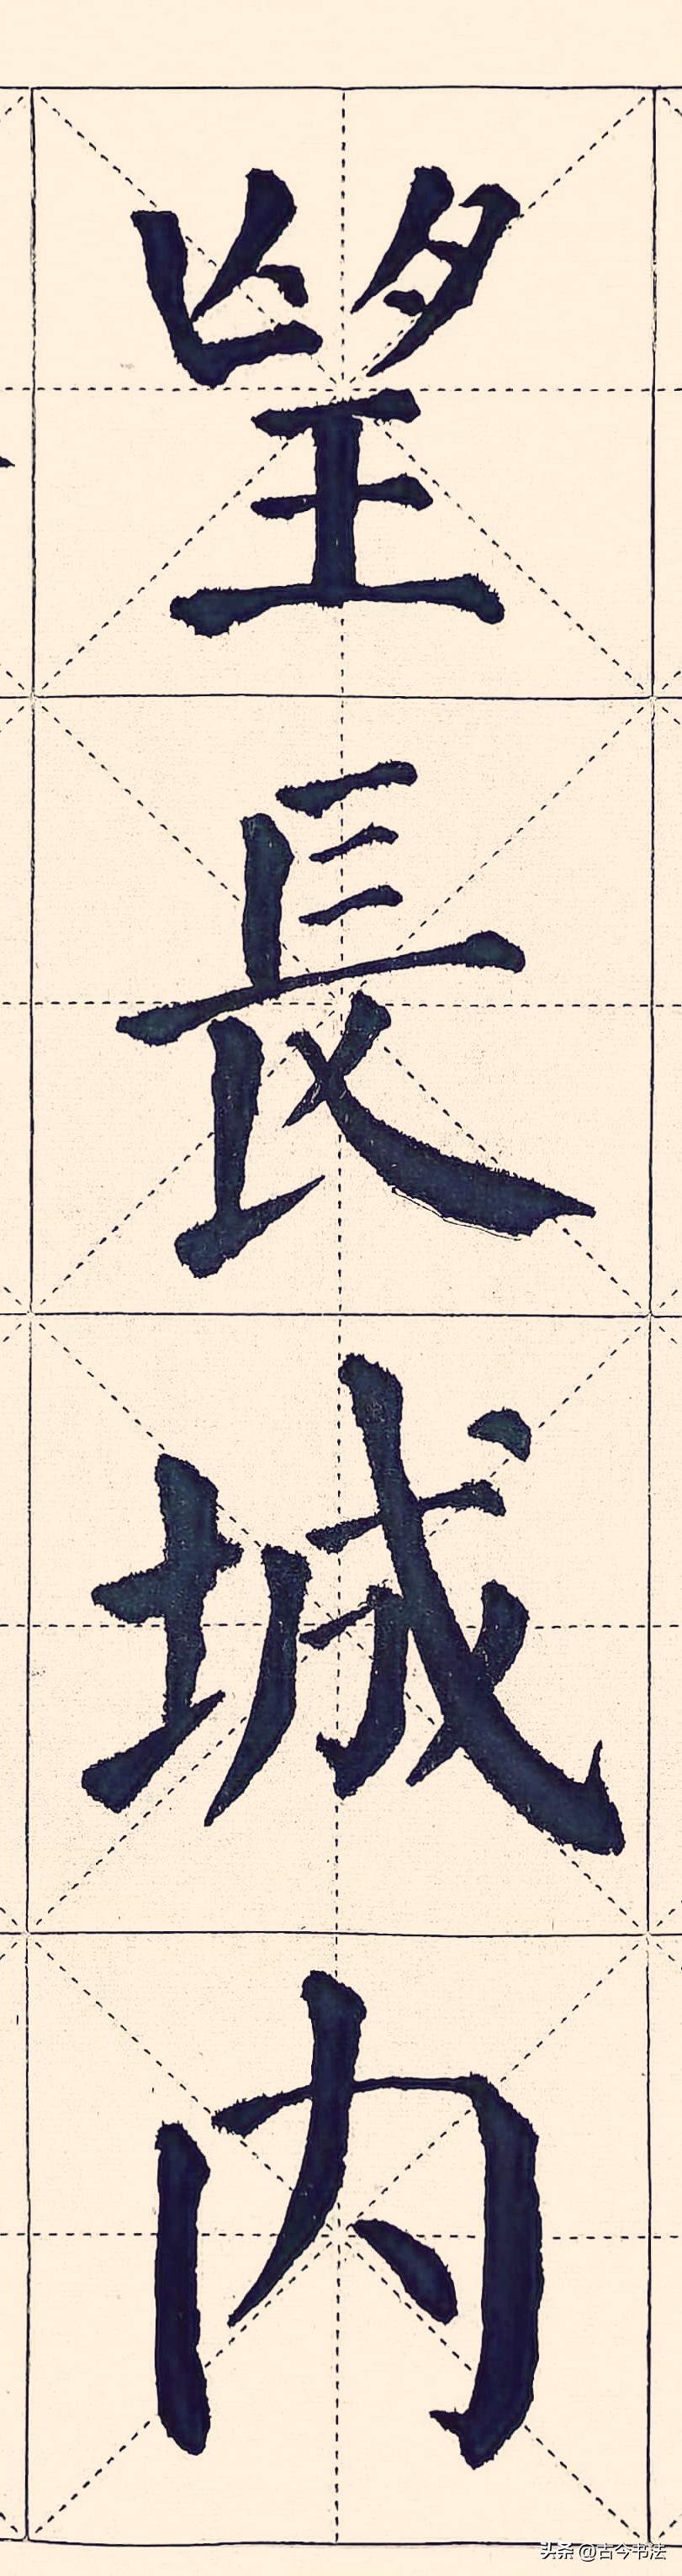 望長城内
头条 @古今书法